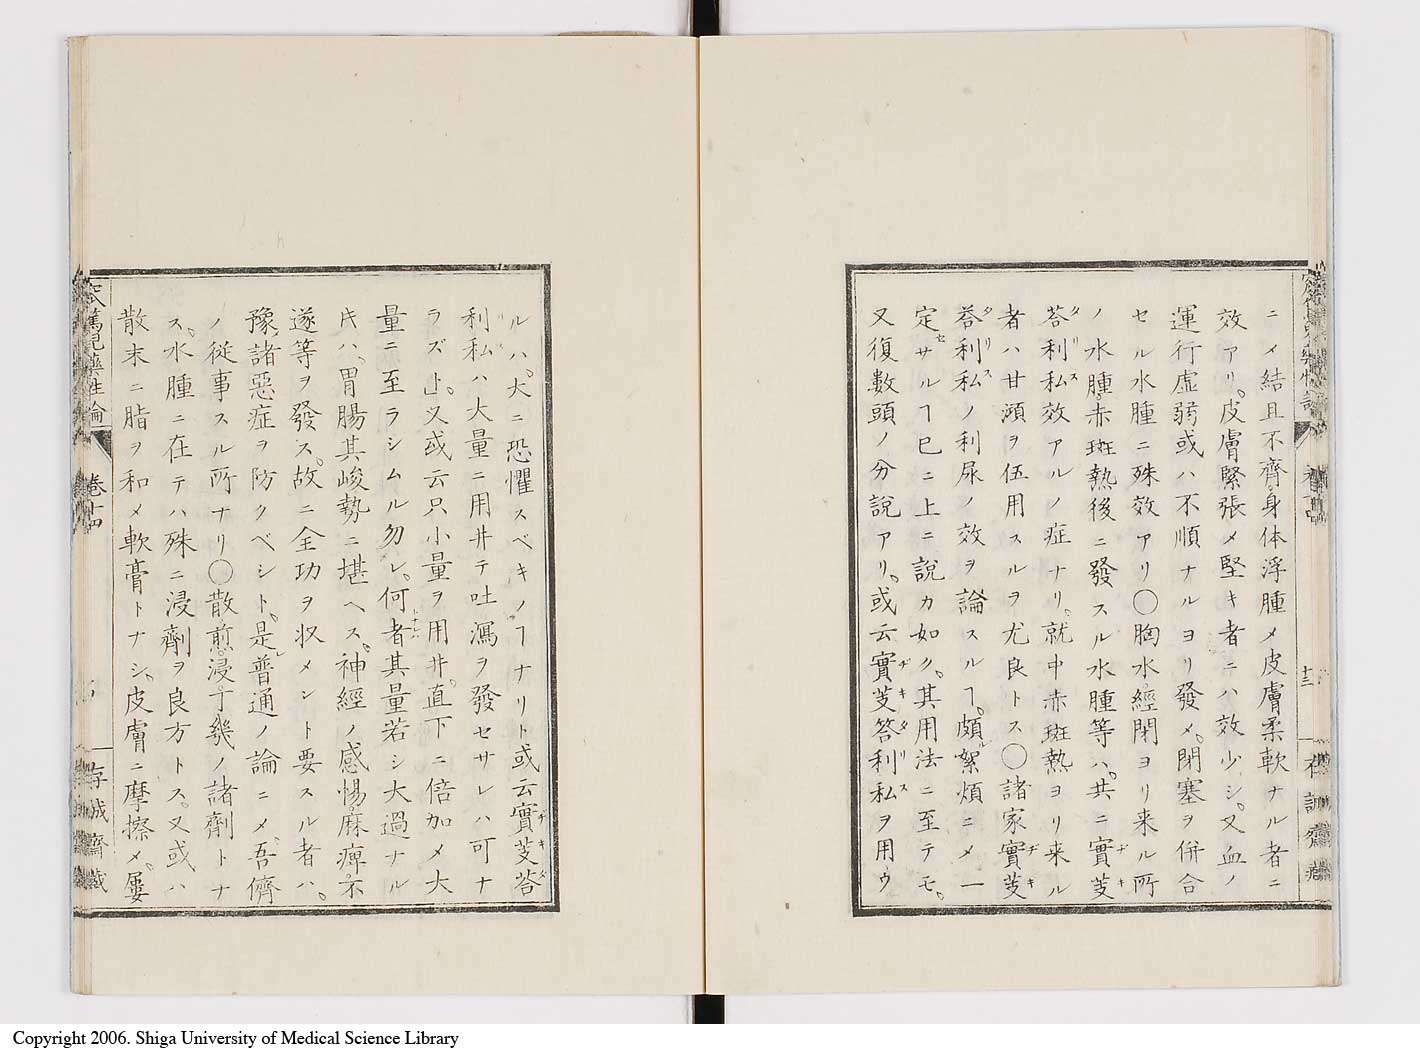 ニメ結且不齊。身体浮腫メ皮膚柔軟ナル者ニ
效アリ。皮膚緊張メ堅キ者ニハ效少シ。又血ノ
運行虚弱或ハ不順ナルヨリ發メ。閉塞ヲ併合
セル水腫ニ殊效アリ〇胸水。經閉ヨリ来ル所
ノ水腫。赤斑熱後ニ發スル水腫等ハ。共ニ實芰
荅利私效アルノ症ナリ。就中赤斑熱ヨリ来ル
者ハ甘澒ヲ伍用スルヲ尤良トス〇諸家實芰
荅利私ノ利尿ノ效ヲ論スルヿ。頗ル絮煩ニメ一
定セサルヿ已ニ上ニ説カ如ク。其用法ニ至テモ。
又復數頭ノ分説アリ。或云實芰答利私ヲ用ウ
ルハ。大ニ恐懼スベキノヿナリト或云實芰荅
利私ハ大量ニ用井テ吐瀉ヲ發セサレハ可ナ
ラズト。又或云只小量ヲ用井。直下ニ倍加メ大
量ニ至ラシムル勿レ。何者其量若シ大過ナル
キハ。胃腸其峻勢ニ堪ヘス。神經ノ感愓。麻痺。不
遂等ヲ發ス。故ニ全功ヲ収メント要スル者ハ。
豫諸惡症ヲ防クベシト。是普通ノ論ニメ。吾儕
ノ從事スル所ナリ〇散。煎。浸。丁幾ノ諸劑トナ
ス。水腫ニ在テハ殊ニ浸劑ヲ良方トス。又或ハ
散末ニ脂ヲ和メ軟膏トナシ。皮膚ニ摩擦メ。屢
篤兒藥性論
卷十四
存誠齋藏